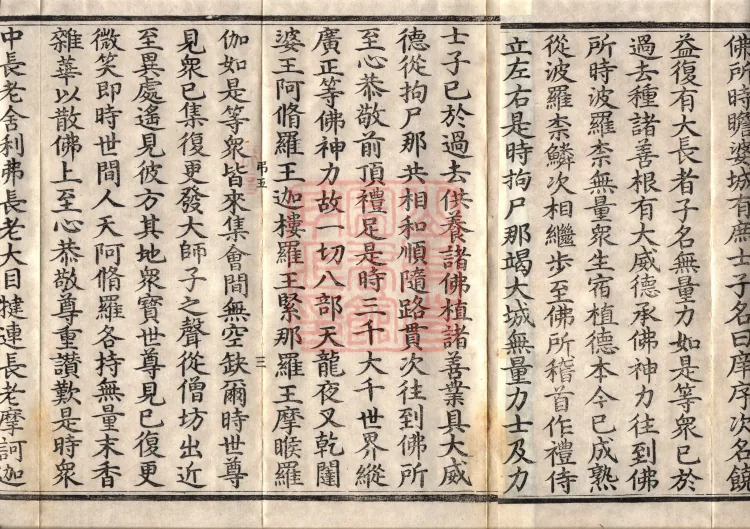 佛所時瞻婆城有庶士子名曰庠序次名饒
益復有大長者子名無量力如是等衆已於
過去種諸善根有大威德承佛神力往到佛
所時波羅柰無量衆生宿植德本今已成熟
從波羅柰鱗次相繼步至佛所稽首作禮侍
立左右是時拘尸那竭大城無量力士及力
士子已於過去供養諸佛植諸善業具大威
德從拘尸那共相和順隨路貫次往到佛所
至心恭敬前頂禮足是時三千大千世界縱
廣正等佛神力故一切八部天龍夜叉乾闥
婆王阿脩羅王迦樓羅王緊那羅王摩睺羅
弔五 三
伽如是等衆皆來集會間無空缺爾時世尊
見衆已集復更發大師子之聲從僧坊出近
至異處遙見彼方其地衆寶世尊見已復更
微笑即時世間人天阿脩羅各持無量末香
雜華以散佛上至心恭敬尊重讚歎是時衆
中長老舍利弗長老大目揵連長老摩訶迦